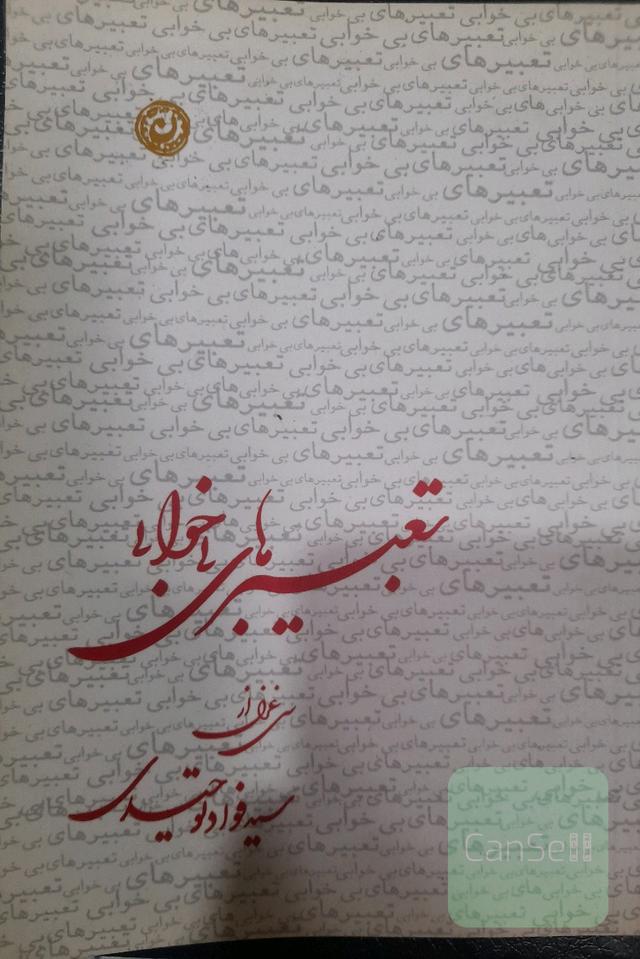 تعبیرهای بی خوابی
سی غزل از
سید فواد توحیدی
CanSell